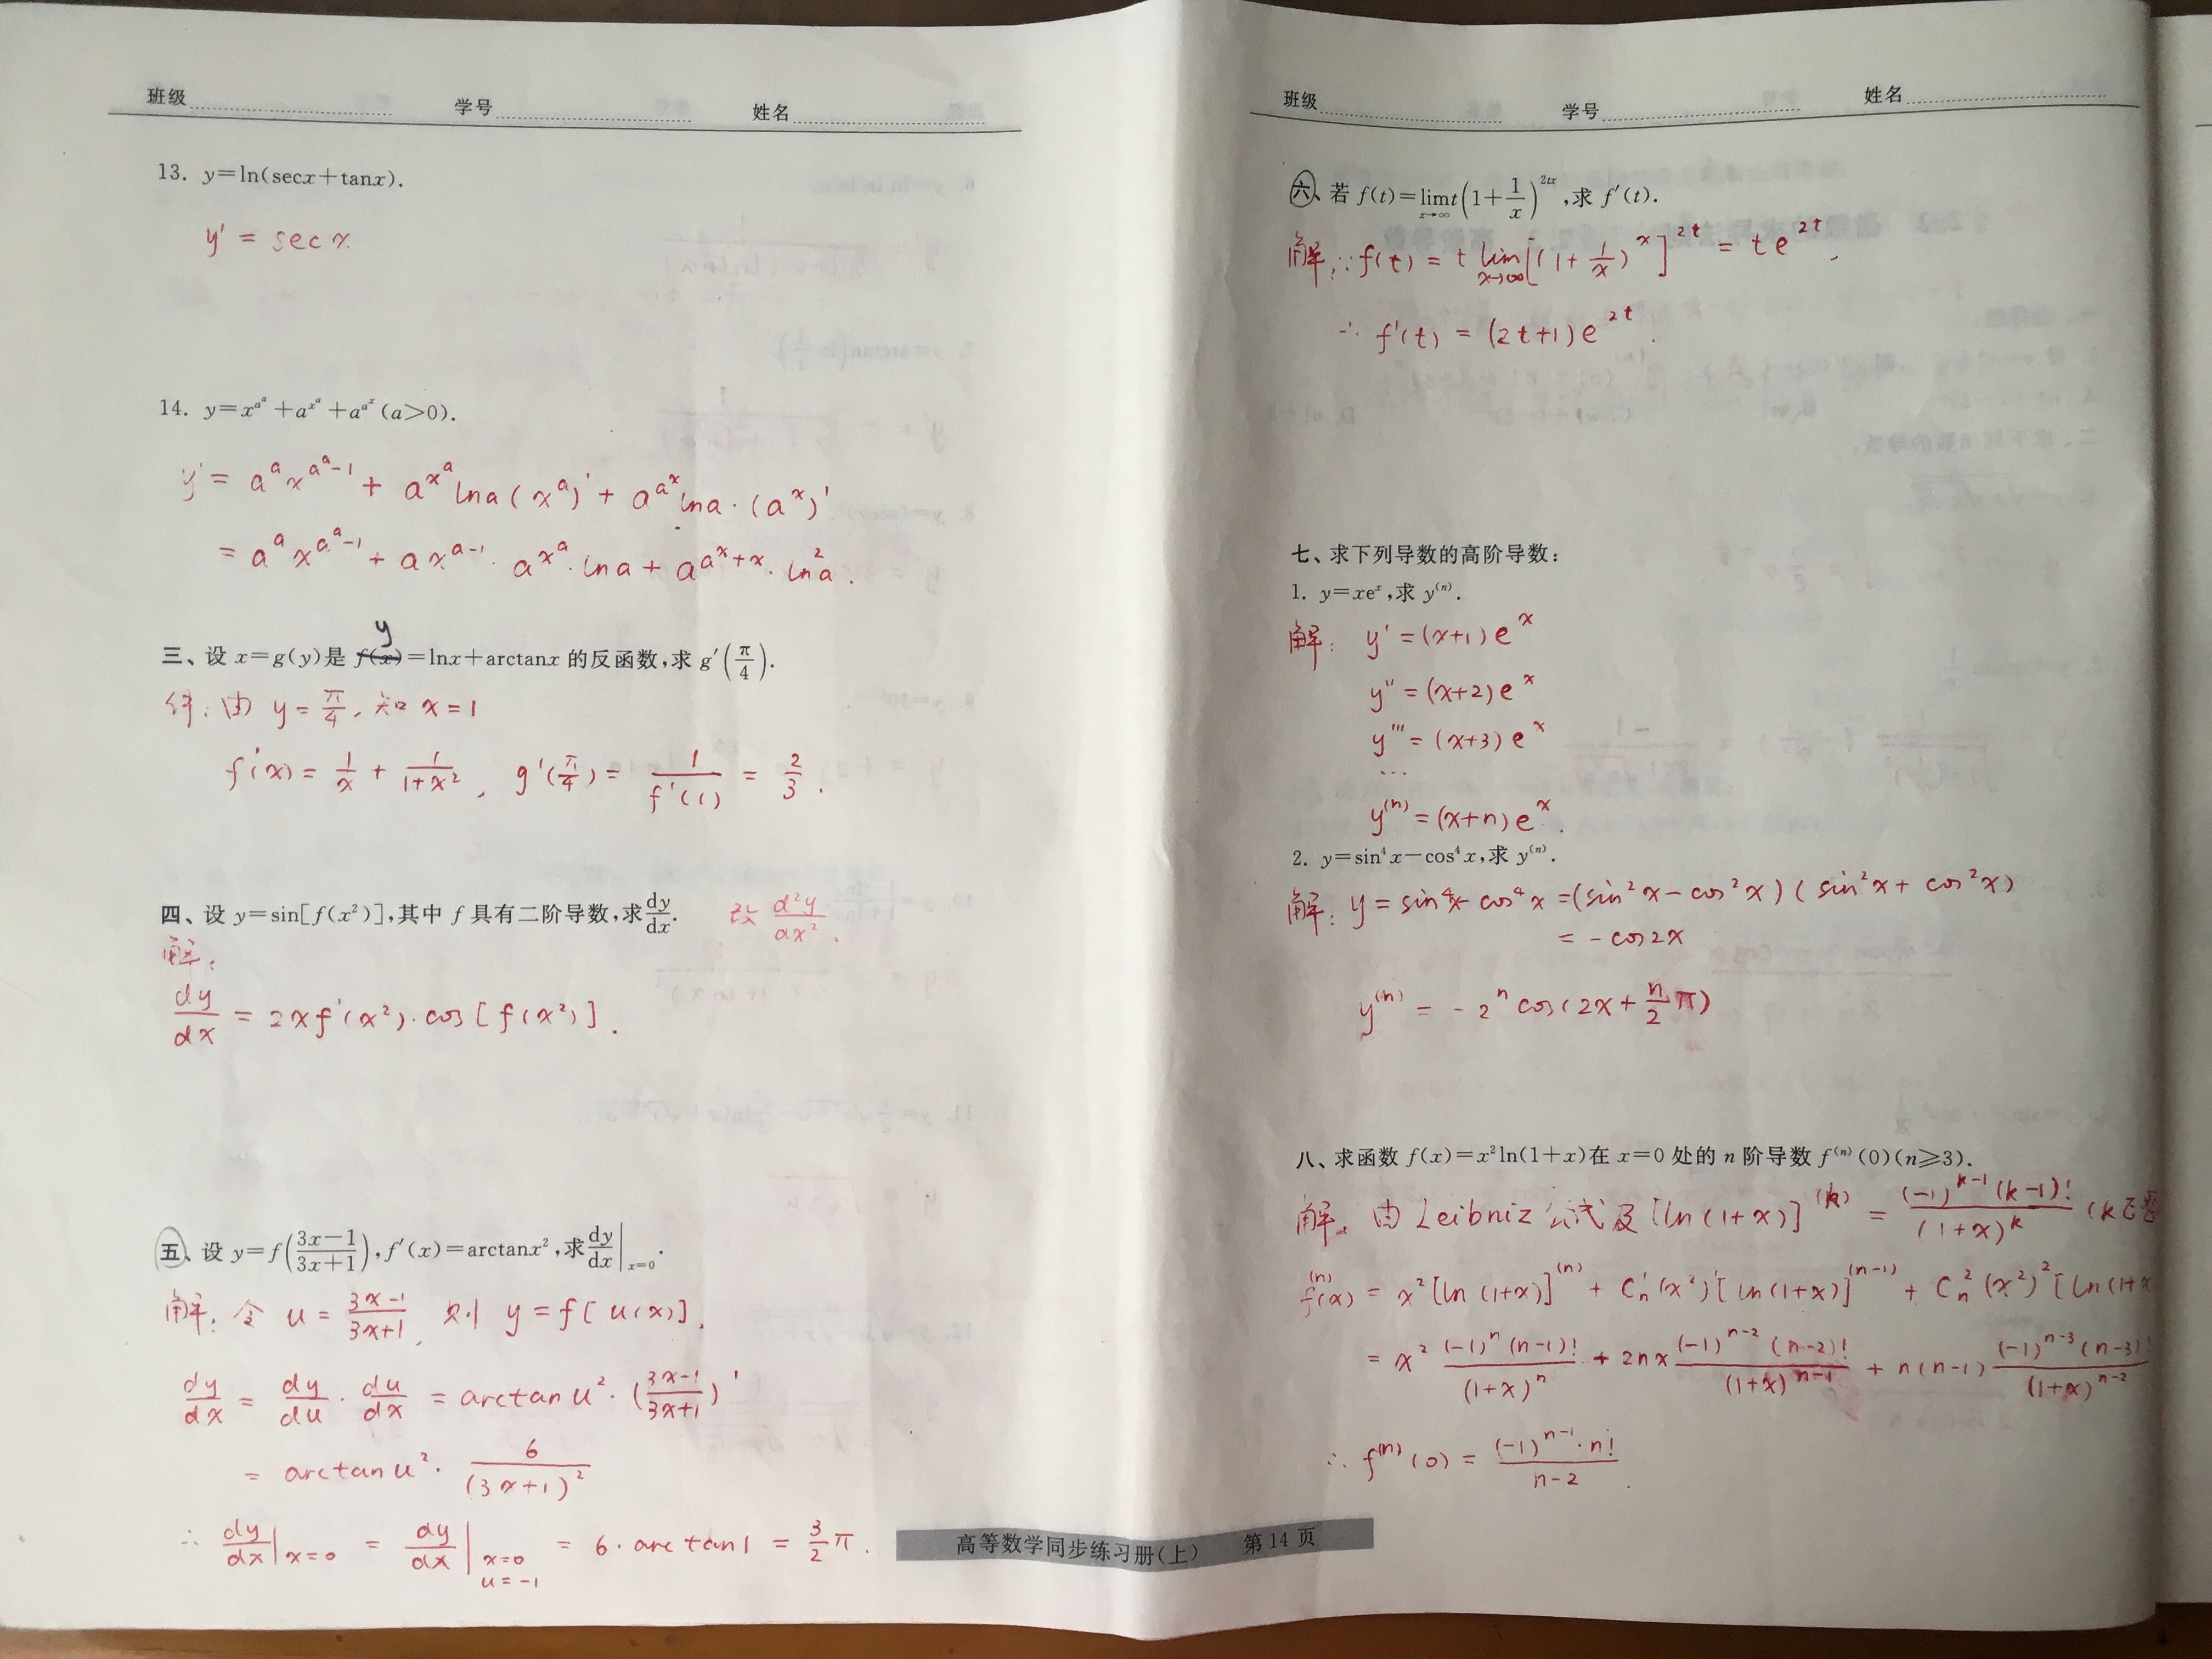 班级 学号 姓名
13. y=ln(secx+tanx).
y' = sec x
14. y=x^{a^a}+a^{x^a}+a^{a^x}(a>0).
y' = a^a x^{a^a-1} + a^{x^a} lna (x^a)' + a^{a^x} lna·(a^x)'
= a^a x^{a^a-1} + a x^{a-1}·a^{x^a}·lna + a^{a^x+x}·ln²a.
y
三、设 x=g(y)是 f(x)=lnx+arctanx 的反函数,求 g'(π/4).
解:由 y=π/4, 知 x=1
f'(x) = 1/x + 1/(1+x²), g'(π/4) = 1/f'(1) = 2/3.
四、设 y=sin[f(x²)],其中 f 具有二阶导数,求dy/dx. 改 d²y/dx².
解:
dy/dx = 2xf'(x²)·cos[f(x²)].
五、设 y=f((3x-1)/(3x+1)), f'(x)=arctanx²,求dy/dx|_{x=0}.
解:令 u = (3x-1)/(3x+1), 则 y=f[u(x)],
dy/dx = dy/du · du/dx = arctan u²·((3x-1)/(3x+1))'
= arctan u²· 6/(3x+1)²
∴ dy/dx|_{x=0} = dy/dx|_{x=0 u=-1} = 6·arctan1 = 3/2 π.
班级 学号 姓名
六、若 f(t)=lim_{x→∞} t(1+1/x)^{2tx},求 f'(t).
解:∵f(t) = t lim_{x→∞}[(1+1/x)^x]^{2t} = te^{2t},
∴ f'(t) = (2t+1)e^{2t}.
七、求下列导数的高阶导数:
1. y=xe^x,求 y^{(n)}.
解: y' = (x+1)e^x
y'' = (x+2)e^x
y''' = (x+3)e^x
...
y^{(n)} = (x+n)e^x.
2. y=sin⁴x-cos⁴x,求 y^{(n)}.
解: y = sin⁴x-cos⁴x =(sin²x-cos²x)(sin²x+cos²x)
= -cos2x
y^{(n)} = -2^n cos(2x+n/2 π)
八、求函数 f(x)=x²ln(1+x)在 x=0 处的 n 阶导数 f^{(n)}(0)(n⩾3).
解: 由 Leibniz 公式及[ln(1+x)]^{(k)} = (-1)^{k-1}(k-1)!/(1+x)^k (k
f^{(n)}(x) = x²[ln(1+x)]^{(n)} + C_n^1(x²)'[ln(1+x)]^{(n-1)} + C_n^2(x²)²[ln(1+x
= x² (-1)^n(n-1)!/(1+x)^n + 2nx (-1)^{n-2}(n-2)!/(1+x)^{n-1} + n(n-1) (-1)^{n-3}(n-3)!/(1+x)^{n-2}
∴ f^{(n)}(0) = (-1)^{n-1}·n!/(n-2).
高等数学同步练习册(上) 第 14 页